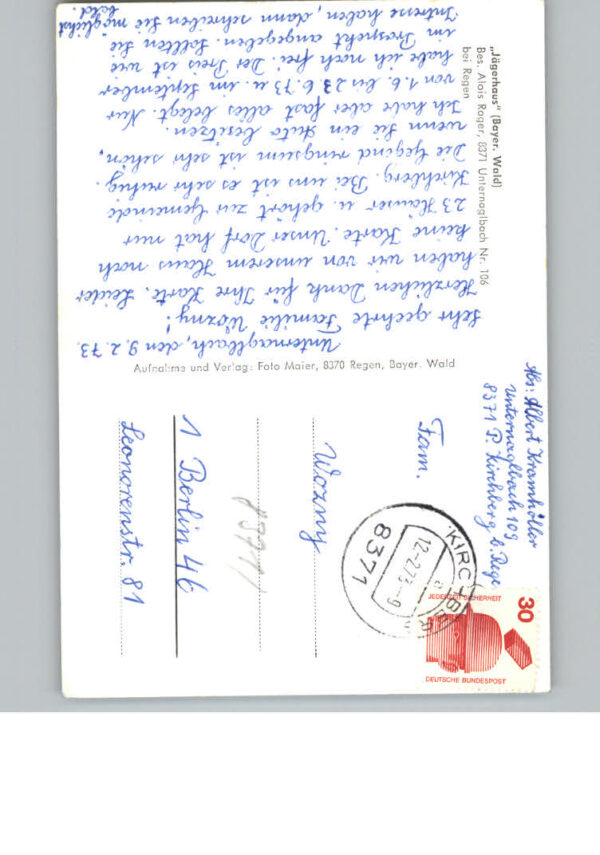 „Jägerhaus" (Bayer. Wald)
Bes. Alois Roger, 8371 Unternaglbach Nr. 106
bei Regen
Unternaglbach, den 9.2.73.
Sehr geehrte Familie Wozny!
Herzlichen Dank für Ihre Karte. Leider
haben wir von unserem Haus noch
keine Karte. Unser Dorf hat nur
23 Häuser u. gehört zur Gemeinde
Kirchberg. Bei uns ist es sehr ruhig.
Die Gegend ringsum ist sehr schön,
wenn Sie ein Auto besitzen.
Ich habe aber fast alles belegt. Nur
von 1.6. bis 23.6.73 u. im September
habe ich noch frei. Der Preis ist wie
im Prospekt angegeben. Sollten Sie
Interesse haben, dann schreiben Sie möglichst
bald.
Aufnahme und Verlag: Foto Maier, 8370 Regen, Bayer. Wald
Abs: Albert Kramhöller
Unternaglbach 109
8371 P. Kirchberg b. Rege
30
JEDERZEIT SICHERHEIT
DEUTSCHE BUNDESPOST
KIRCHBER
12-2.73-9
8371
Fam.
Wozny
8371
1 Berlin 46
Leonorenstr. 81